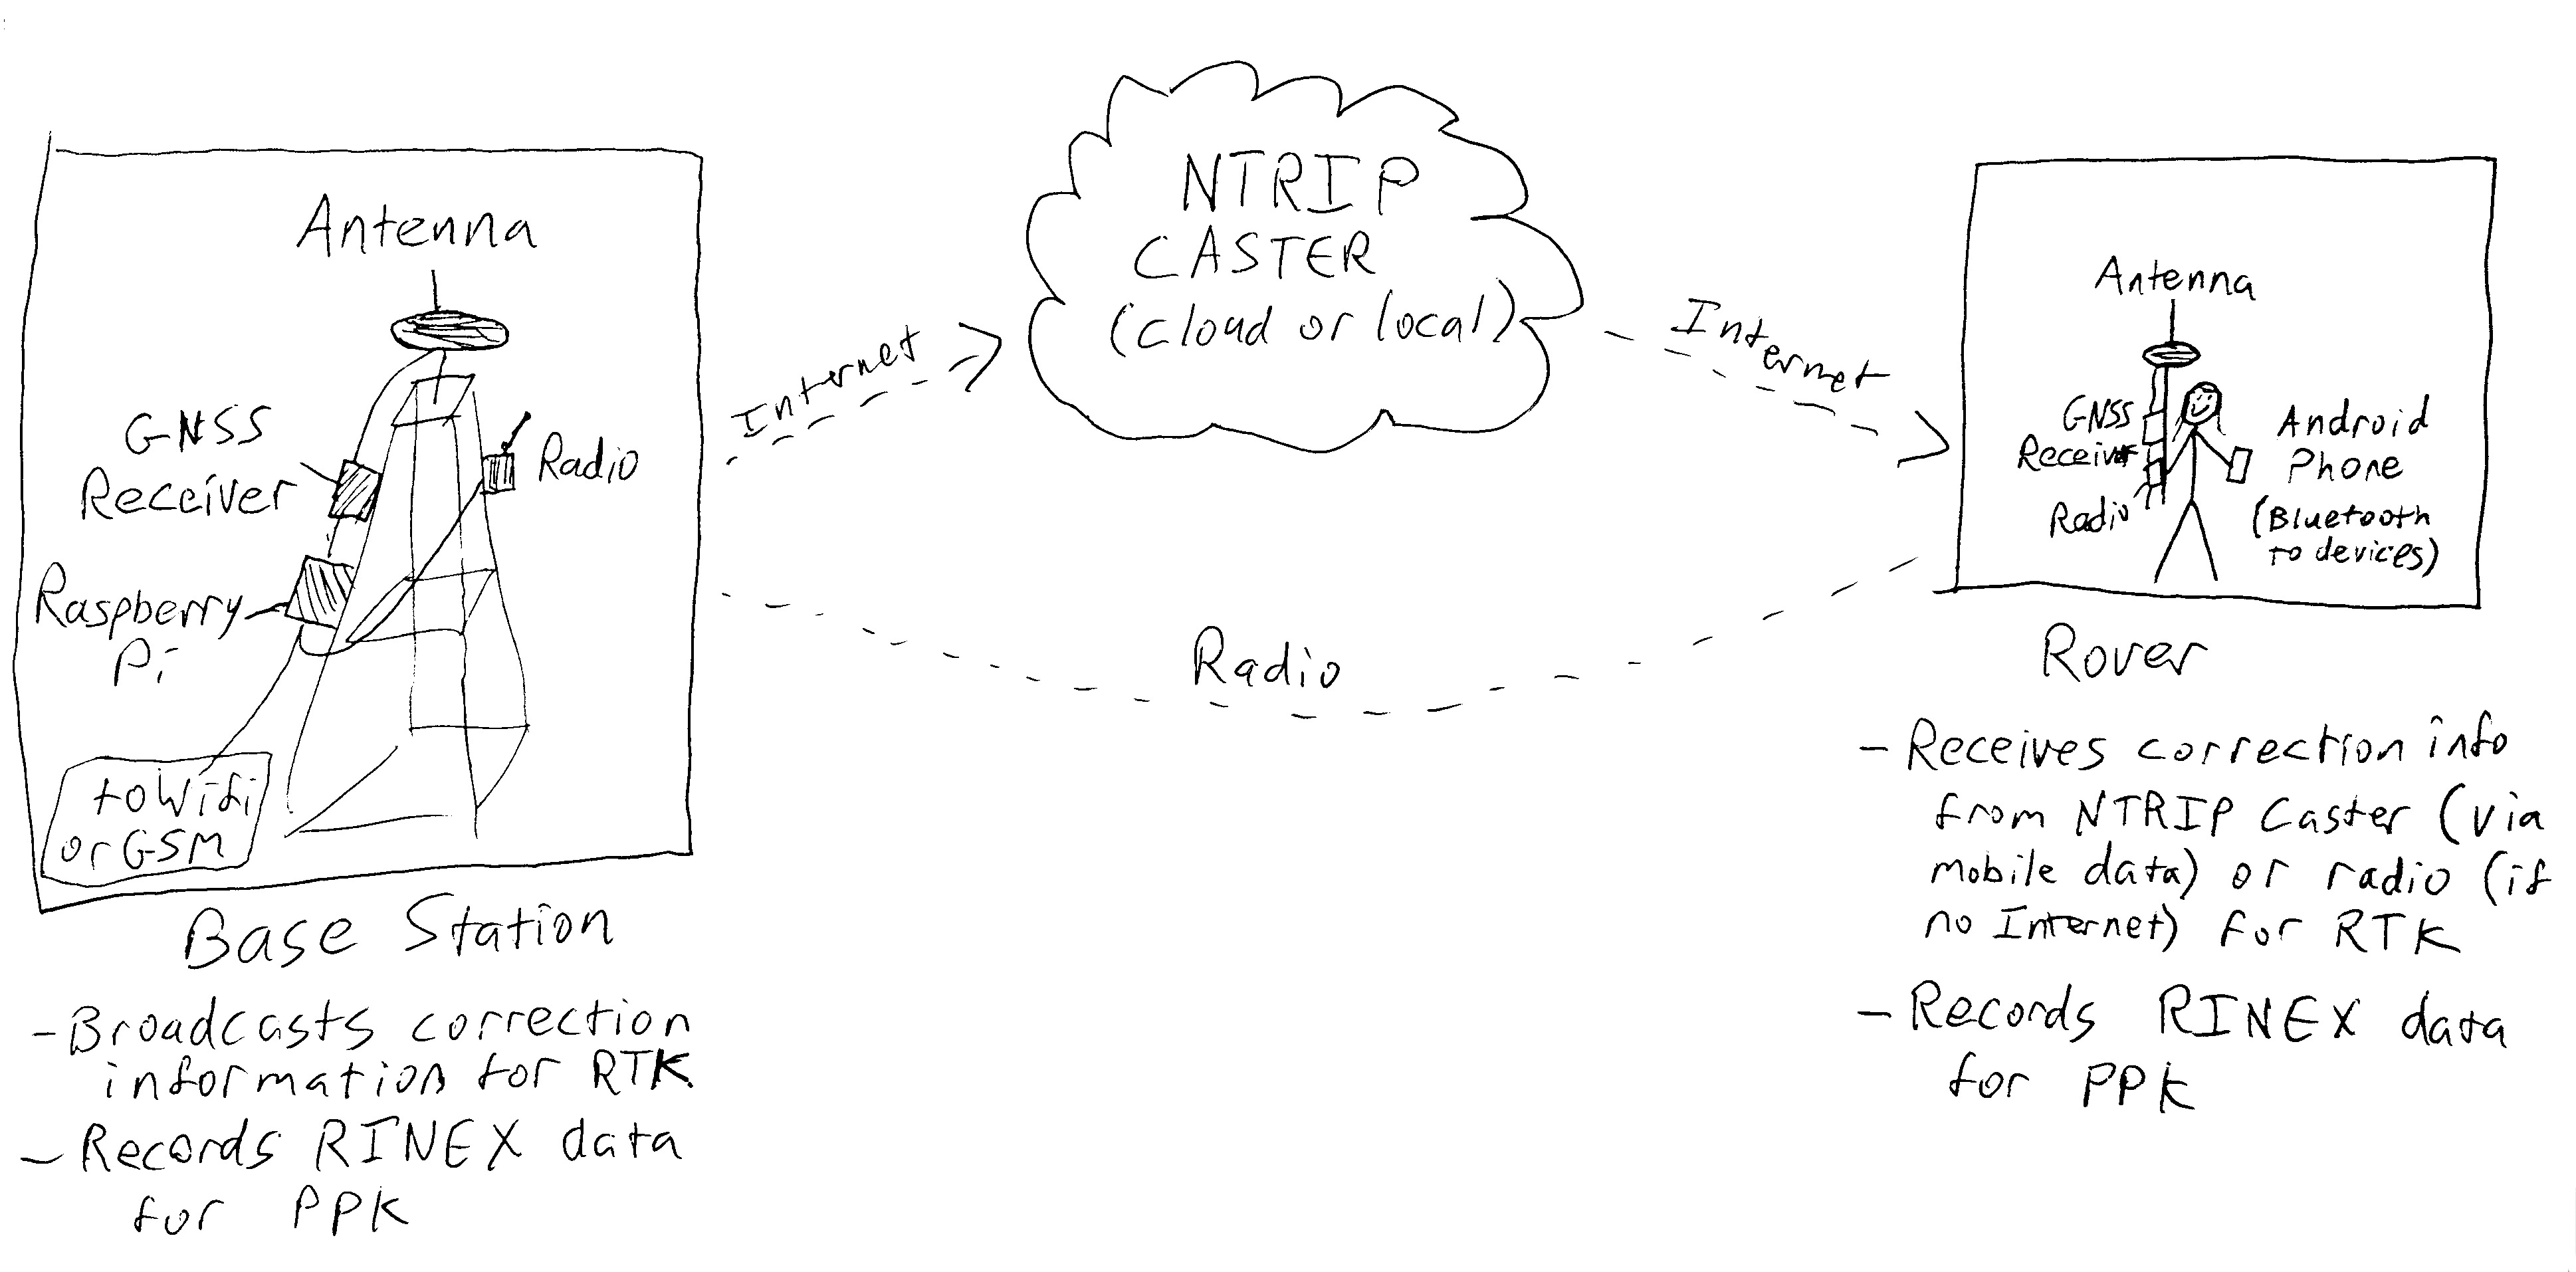 Antenna
GNSS
Receiver
Radio
Raspberry
Pi
to Wifi
or GSM
Base Station
- Broadcasts correction
information for RTK
- Records RINEX data
for PPK
Internet
NTRIP
CASTER
(cloud or local)
Internet
Radio
Antenna
GNSS
Receiver
Radio
Android
Phone
(Bluetooth
to devices)
Rover
- Receives correction info
from NTRIP Caster (via
mobile data) or radio (if
no Internet) for RTK
- Records RINEX data
for PPK